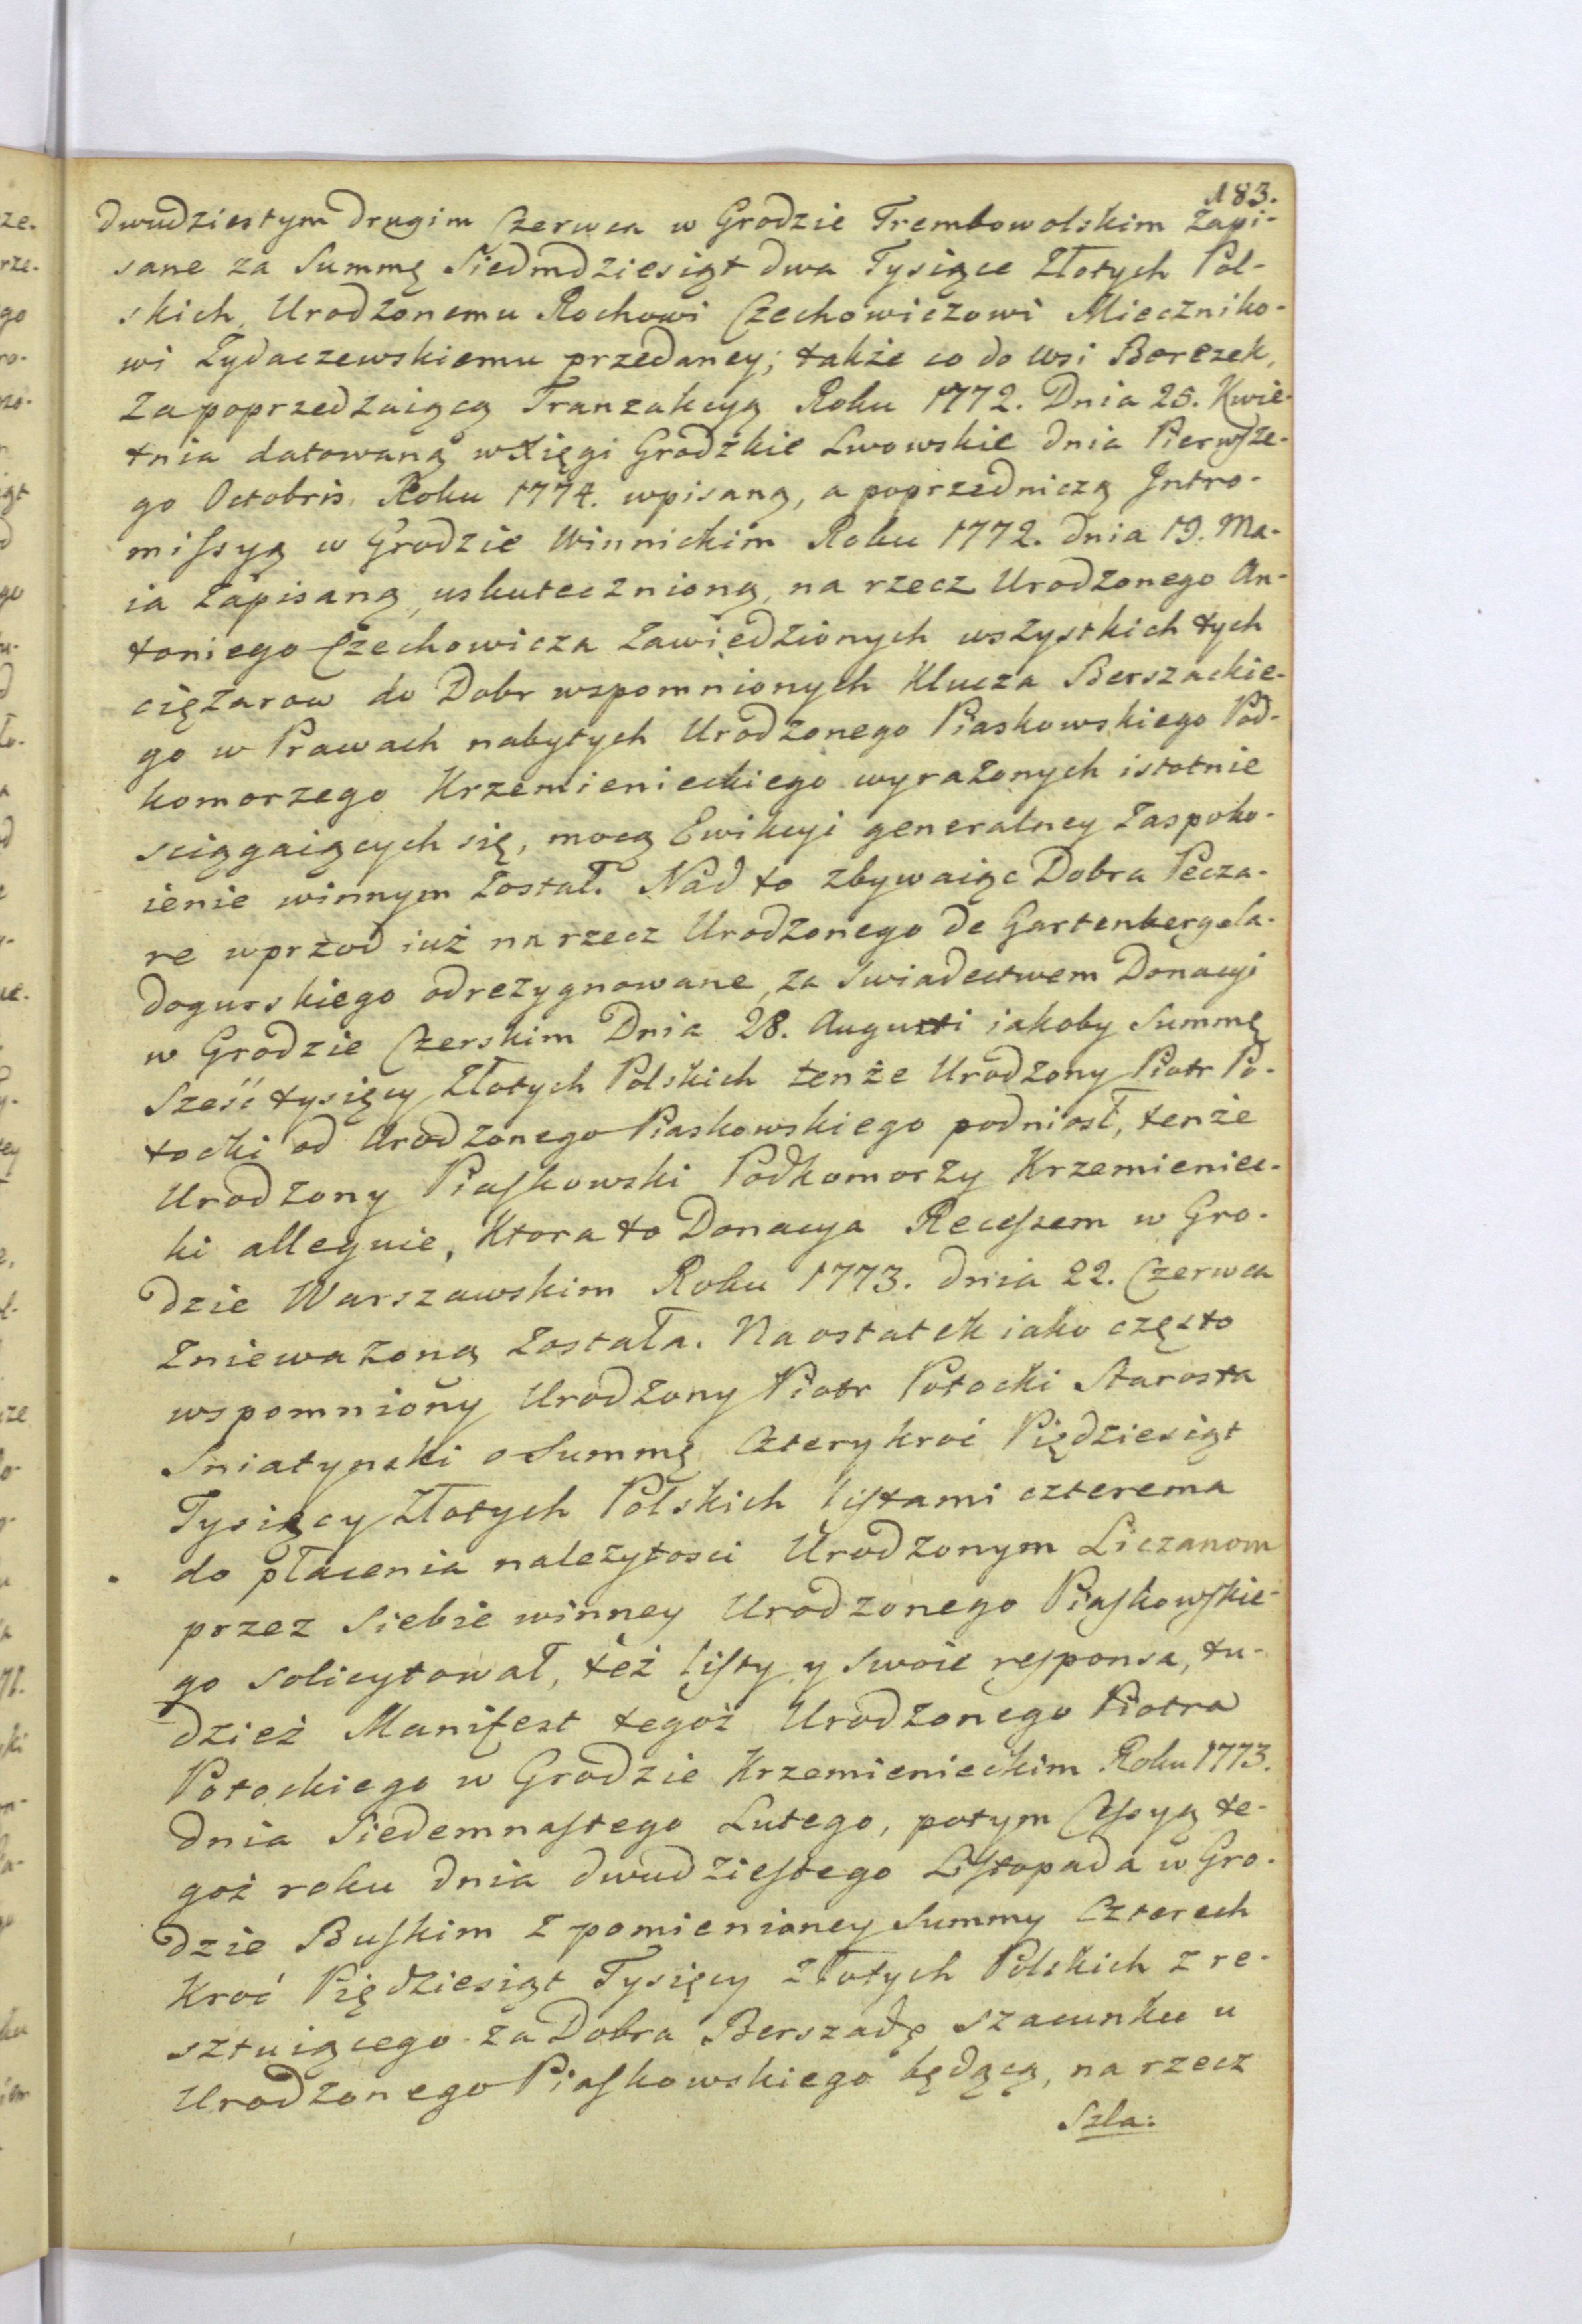 183.
dwudziestym drugim Czerwca w Grodzie Trembowolskim Zapi-
sane za Summę Siedmdziesiąt dwa Tysiące Złotych Pol-
skich, Urodzonemu Rochowi Czechowiczowi Mieczniko-
wi Zydaczewskiemu przedaney; także co do wsi Berezek,
Za poprzedzaiącą Tranzakcyą Roku 1772. Dnia 25. Kwie-
tnia datowaną w Xięgi Grodzkie Lwowskie dnia Pierwsze-
go Octobris Roku 1774. wpisaną, a poprzedniczą Intro-
missyą w Grodzie Winnickim Roku 1772. dnia 19. Ma-
ia Zapisaną, uskutecznioną, na rzecz Urodzonego An-
toniego Czechowicza Zawiedzionych wszystkich tych
ciężarow do Dobr wspomnionych Klucza Berszackie-
go w Prawach nabytych Urodzonego Piaskowskiego Pod-
komorzego Krzemienieckiego wyrażonych istotnie
sciągaiących się, mocą Ewikcyi generalney Zaspoko-
ienie winnym Został. Nad to zbywaiąc Dobra Pecza-
re wprzod iuż na rzecz Urodzonego de Gartenberg Sa-
dogurskiego odrezygnowane, za Swiadectwem Donacyi
w Grodzie Czerskim Dnia 28. Augusti iakoby Summę
Sześć tysięcy Złotych Polskich tenże Urodzony Piotr Po-
tocki od Urodzonego Piaskowskiego podniosł, tenże
Urodzony Piaskowski Podkomorzy Krzemieniec-
ki alleguie, Ktora to Donacya Recessem w Gro-
dzie Warszawskim Roku 1773. dnia 22. Czerwca
Zniewazoną Została. Na ostatek iako często
wspomniony Urodzony Piotr Potocki Starosta
Sniatynski o Summę Cztery kroć Pięćdziesiąt
Tysięcy Złotych Polskich listami czterema
do płacenia należytosci Urodzonym Liczanom
przez Siebie winney Urodzonego Piaskowskie-
go solicytował, też listy y swoie responsa, tu-
dzież Manifest tegoż Urodzonego Piotra
Potockiego w Grodzie Krzemienieckim Roku 1773.
dnia Siedemnastego Lutego, potym Cessyą te-
goż roku dnia dwudziestego Listopada w Gro-
dzie Buskim z pomienioney Summy Czterech
Kroć Pięćdziesiąt Tysięcy Złotych Polskich z re-
sztuiącego za Dobra Berszadę szacunku u
Urodzonego Piaskowskiego będącą, na rzecz
Szla: